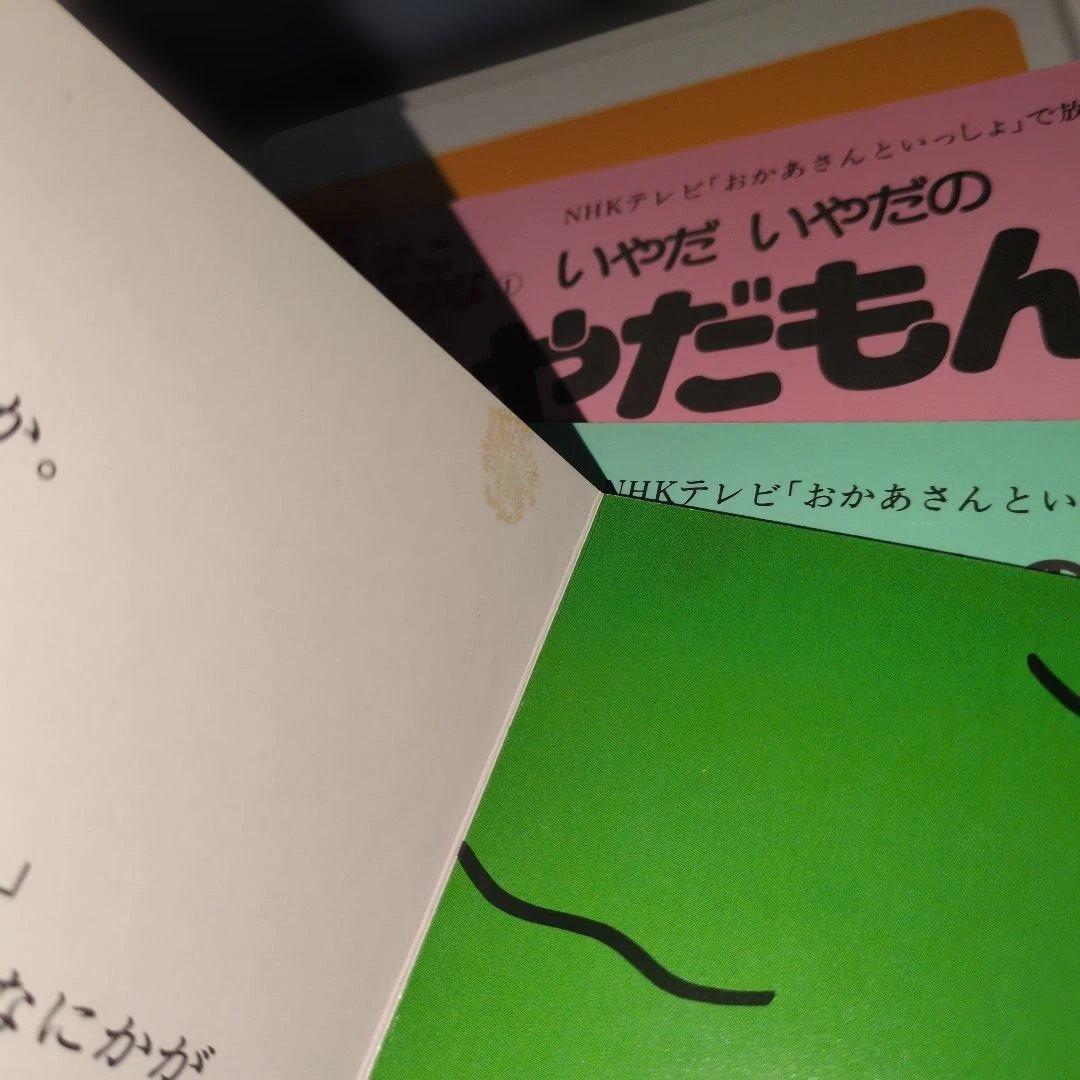 NHKテレビ「おかあさんといっしょ」で放
いやだ いやだの
やだもん
NHKテレビ「おかあさんとい
か。
」
なにかが